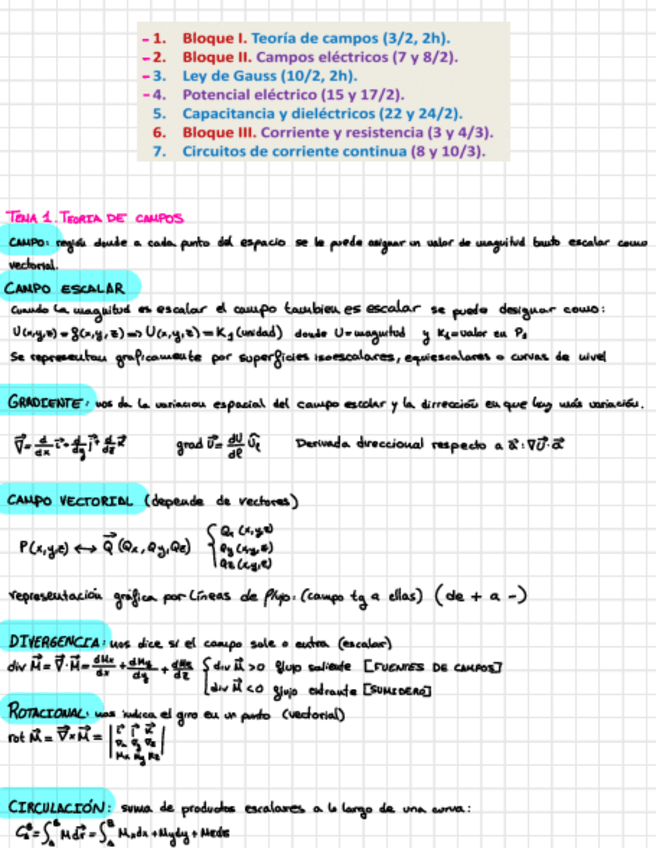 - 1. Bloque I. Teoría de campos (3/2, 2h).
- 2. Bloque II. Campos eléctricos (7 y 8/2).
- 3. Ley de Gauss (10/2, 2h).
- 4. Potencial eléctrico (15 y 17/2).
5. Capacitancia y dieléctricos (22 y 24/2).
6. Bloque III. Corriente y resistencia (3 y 4/3).
7. Circuitos de corriente continua (8 y 10/3).
TEMA 1. TEORIA DE CAMPOS
CAMPO: región donde a cada punto del espacio se le puede asignar un valor de magnitud tanto escalar como
vectorial.
CAMPO ESCALAR
Cuando la magnitud es escalar el campo tambien es escalar se puede designar como:
U(x,y,z) = f(x,y,z) => U(x,y,z) = K₁ (unidad) donde U=magnitud y K₁=valor en P₁
Se representan graficamente por superficies isoescalares, equiescalares o curvas de nivel
GRADIENTE: nos da la variacion espacial del campo escalar y la dirrección en que hay más variación.
∇⃗ = d/dx i⃗ + d/dy j⃗ + d/dz k⃗ grad U⃗ = dU/dl û_l Derivada direccional respecto a a⃗: ∇U⃗·a⃗
CAMPO VECTORIAL (depende de vectores)
P(x,y,z) ↔ Q⃗ (Qx, Qy, Qz) { Qx (x,y,z)
Qy (x,y,z)
Qz (x,y,z)
representación gráfica por Líneas de flujo: (campo tg a ellas) (de + a -)
DIVERGENCIA: nos dice si el campo sale o entra (escalar)
div M⃗ = ∇⃗·M⃗ = dMx/dx + dMy/dy + dMz/dz { div M⃗ >0 flujo saliente [FUENTES DE CAMPOS]
div M⃗ <0 flujo entrante [SUMIDERO]
ROTACIONAL: nos indica el giro en un punto (vectorial)
rot M⃗ = ∇⃗×M⃗ = | i⃗ j⃗ k⃗
∇x ∇y ∇z
Mx My Mz |
CIRCULACIÓN: suma de productos escalares a lo largo de una curva:
C_A^B = ∫_A^B M dr⃗ = ∫_A^B Mxdx + Mydy + Mzdz